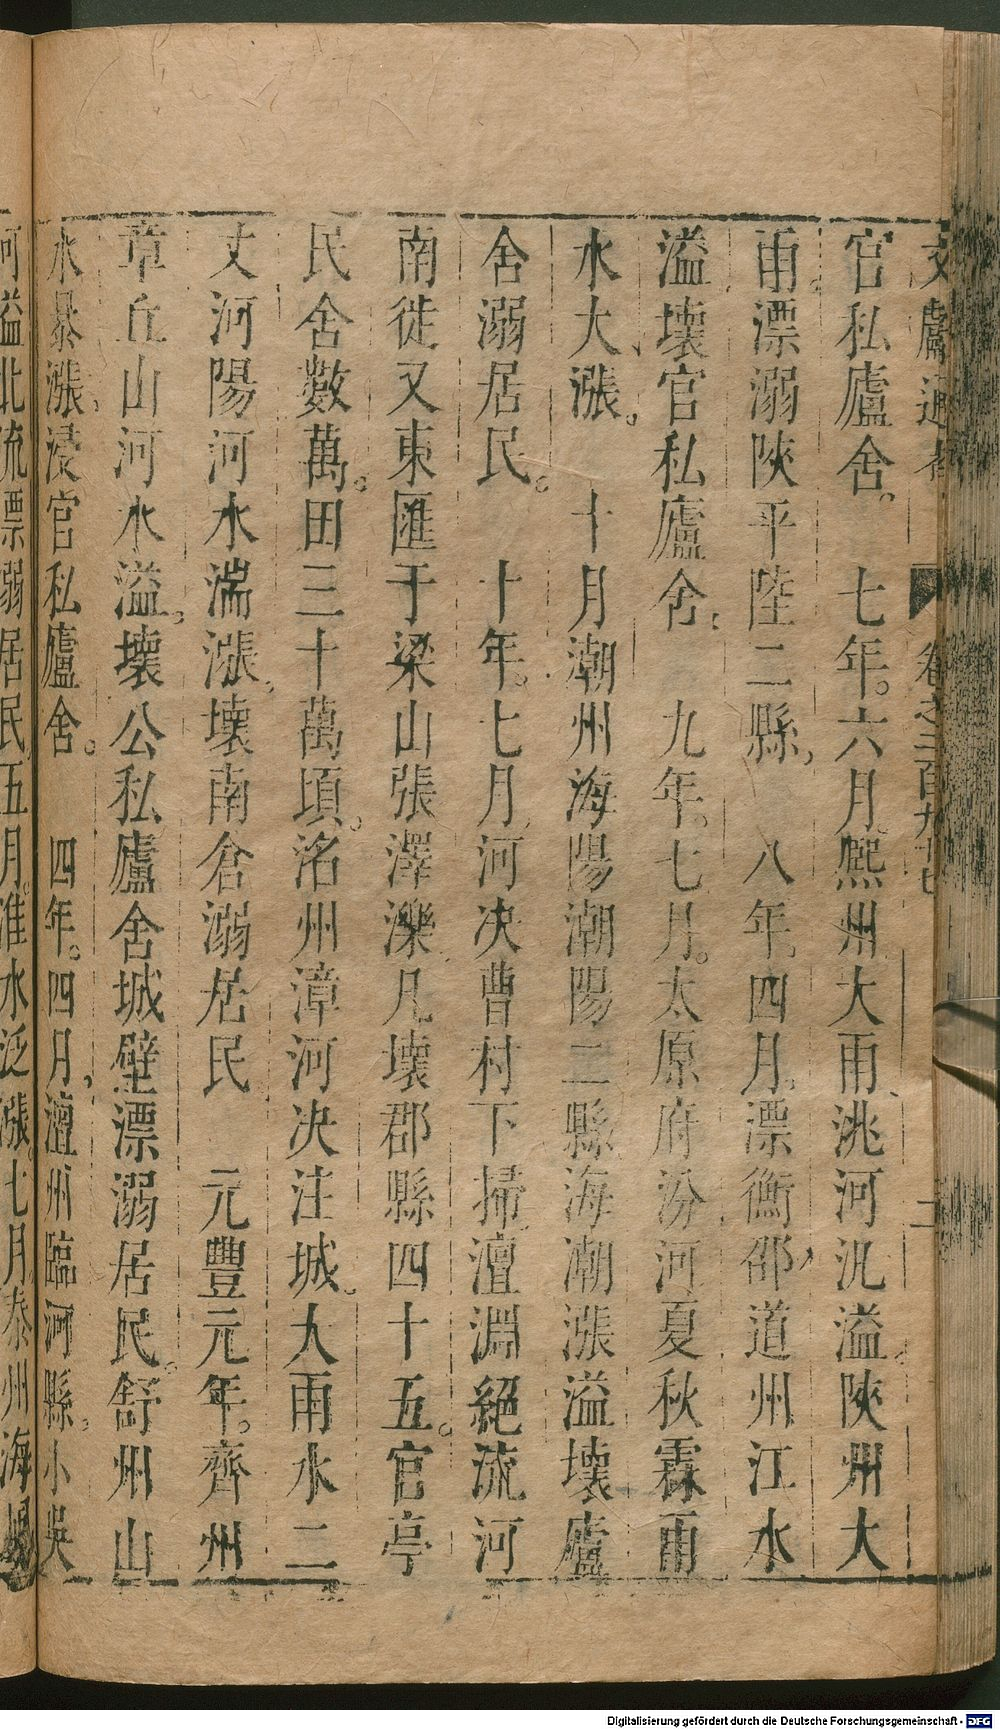 文獻通考 卷之二百九十七 二
官私廬舍。 七年。六月。熙州大雨洮河汎溢陝州大
雨漂溺陝平陸二縣 八年。四月。漂衡邵道州江水
溢壞官私廬舍。 九年。七月。太原府汾河夏秋霖雨
水大漲。 十月潮州海陽潮陽二縣海潮漲溢壞廬
舍溺居民。 十年。七月河决曹村下掃澶淵絕流河
南徙又東匯于梁山張澤濼凡壞郡縣四十五。官亭
民舍數萬。田三十萬頃。洺州漳河决注城。大雨水二
丈河陽河水湍漲壞南倉溺居民 元豐元年。齊州
章丘山河水溢。壞公私廬舍城壁漂溺居民。舒州山
水暴漲。浸官私廬舍。 四年。四月澶州臨河縣。小吳
河溢北流漂溺居民五月淮水泛漲七月泰州海
Digitalisierung gefördert durch die Deutsche Forschungsgemeinschaft - DFG